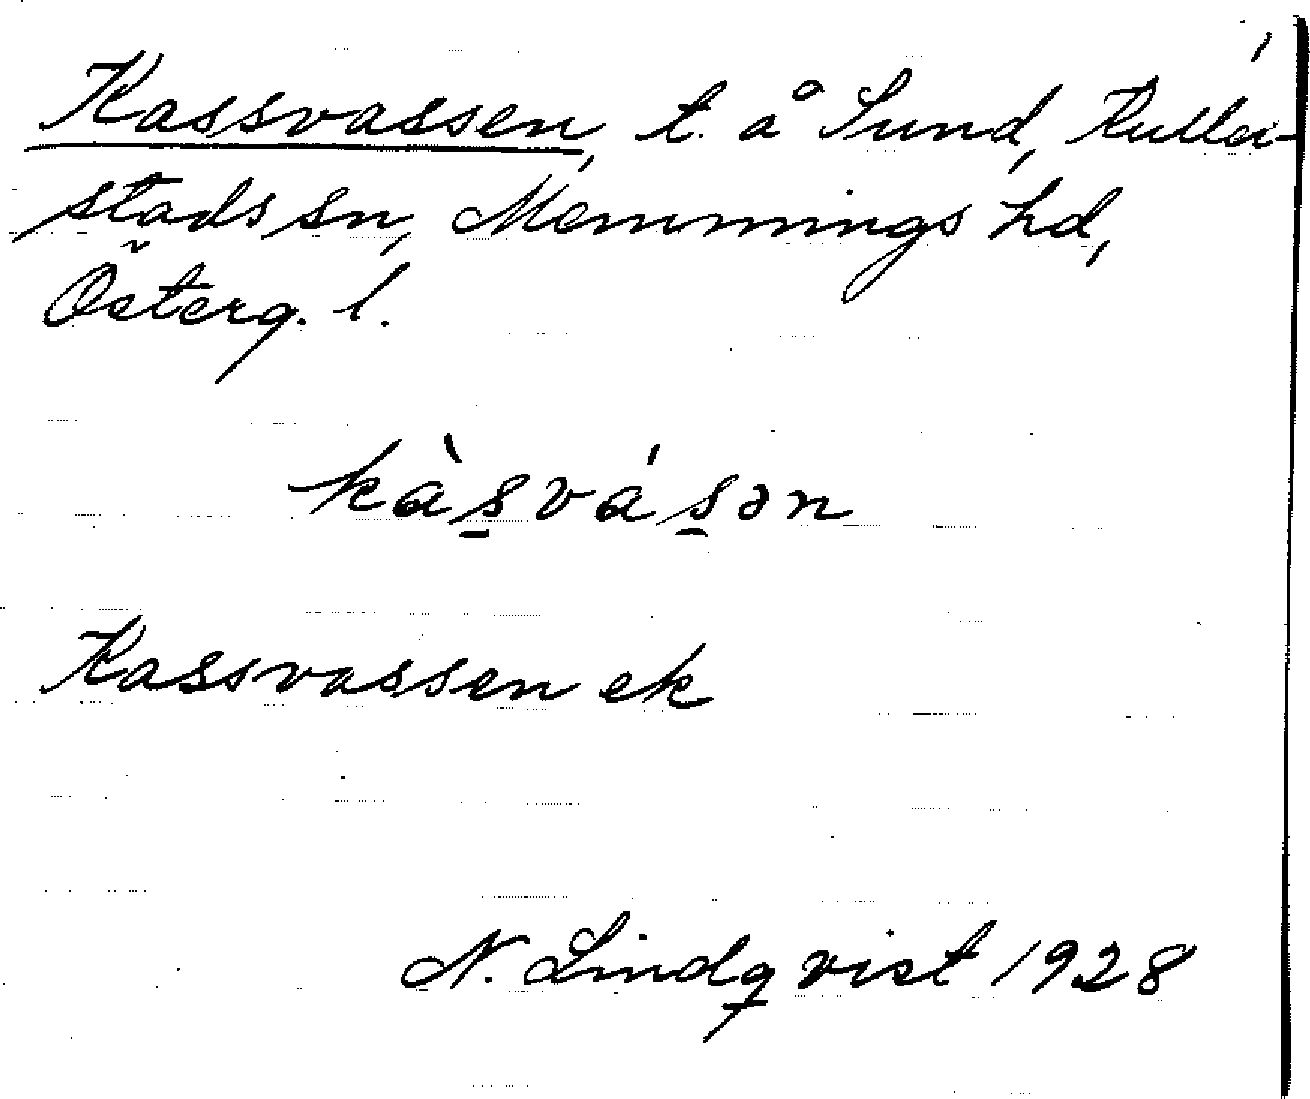 Kassvassen, t. å Sund, Kuller-
stads sn, Memmings hd,
Österg. l.
kàsvásən
Kassvassen ek
N. Lindqvist 1928